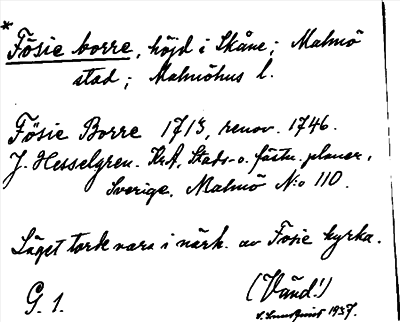 * Fosie borre, höjd i Skåne; Malmö
stad; Malmöhus l.
Fösie Borre 1713, renov. 1746.
J. Hesselgren. KrA, Stads- o. fästn. planer,
Sverige. Malmö N:o 110.
Läget torde vara i närh. av Fosie kyrka.
G. 1.
(Vänd!)
S. Lundquist 1937.